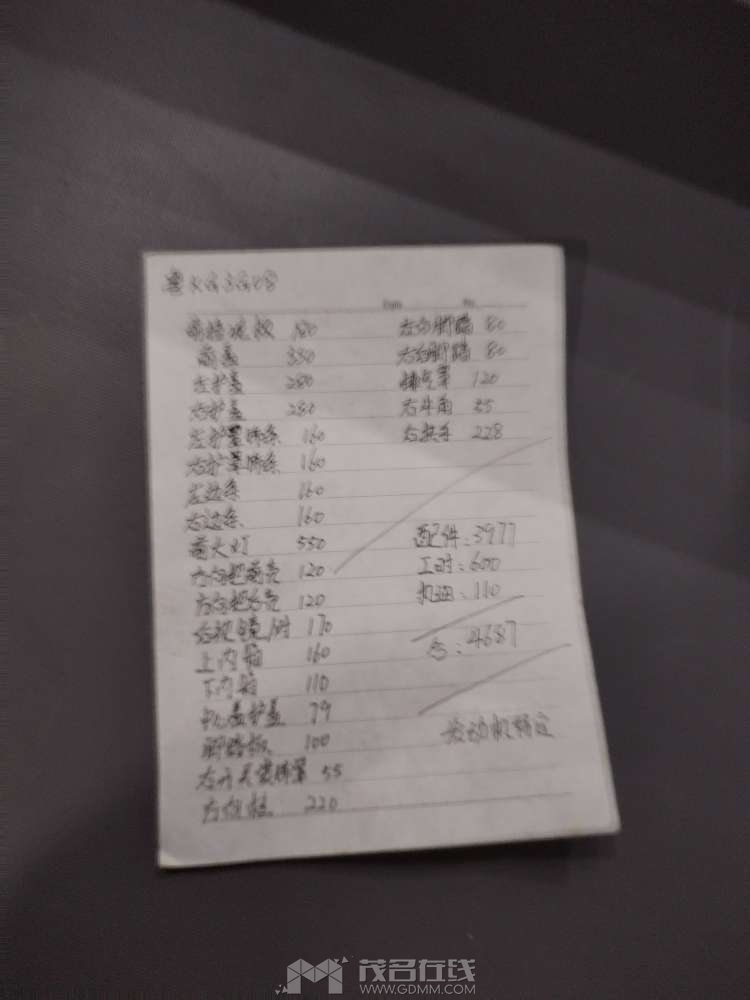 前挡泥板 180
前盖 350
左护盖 280
右护盖 280
左护罩饰条 160
右护罩饰条 160
左边条 160
右边条 160
前大灯 550
方向把前壳 120
方向把后壳 120
后视镜/对 170
上内箱 160
下内箱 110
护盖 79
脚踏板 100
右开关装饰罩 55
方向柱 220
右前脚踏 80
右后脚踏 80
排气罩 120
右牛角 55
右扶手 228
配件:3977
工时:600
机油:110
合:4687
发动机待定
茂名在线
WWW.GDMM.COM